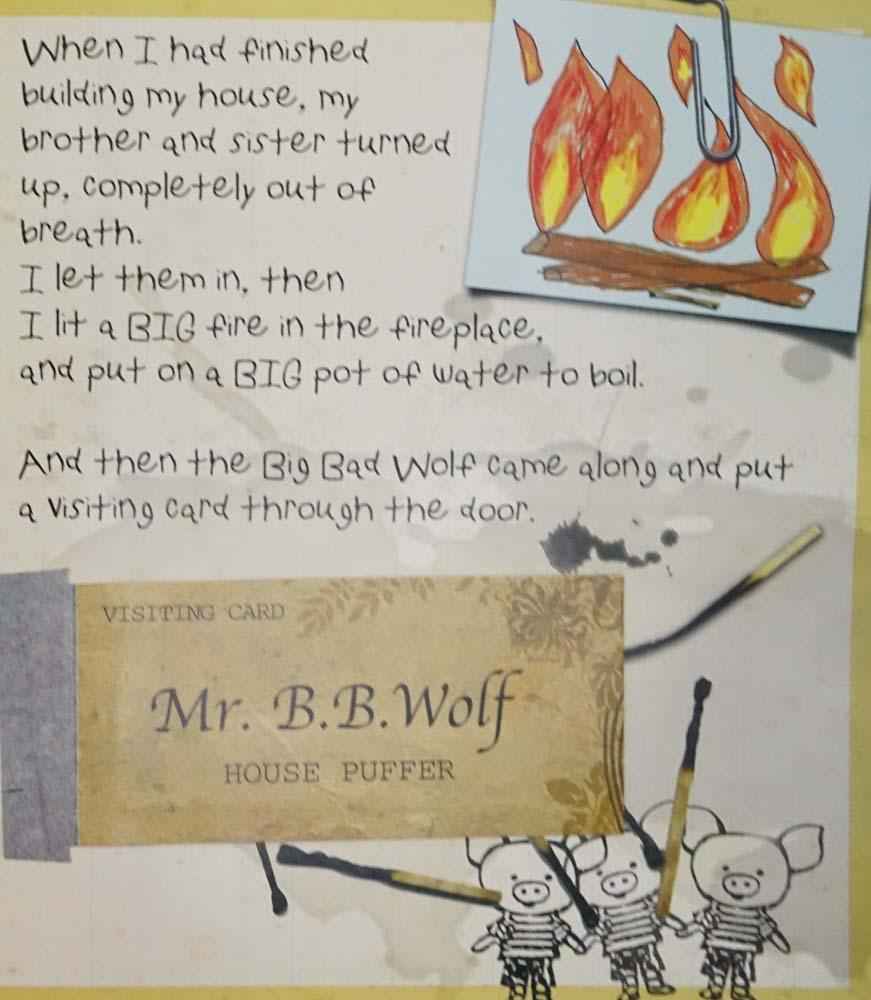 When I had finished
building my house, my
brother and sister turned
up, completely out of
breath.
I let them in, then
I lit a BIG fire in the fireplace,
and put on a BIG pot of water to boil.
And then the Big Bad Wolf came along and put
a visiting card through the door.
VISITING CARD
Mr. B.B.Wolf
HOUSE PUFFER